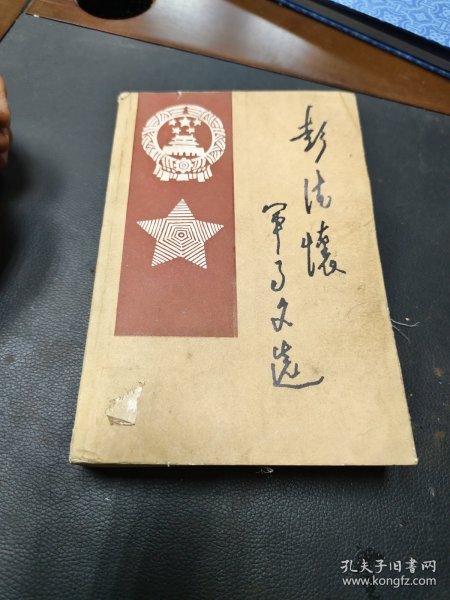 彭德怀
军事文选
孔夫子旧书网
www.kongfz.com